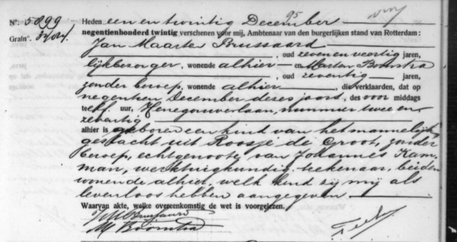 N°. 5899 Heden een en twintig December
negentienhonderd twintig verschenen voor mij, Ambtenaar van den burgerlijken stand van Rotterdam:
Jan Maarten Brussaard
oud zeven en veertig jaren,
lijkbezorger, wonende alhier en Marten Boomstra
oud zeventig jaren,
zonder beroep, wonende alhier die verklaarden, dat op
negentien December dezes jaars, des voor middags
uur, Henegouwerlaan, nummer twee en
zeventig
alhier is geboren een kind van het mannelijk
geslacht uit Roosje de Groot, zonder
beroep, echtgenoote van Johannes
man, werktuigkundig teekenaar, beiden
wonende alhier, welk kind zij mij als
levenloos hebben aangegeven.
Waarvan akte, welke overeenkomstig de wet is voorgelezen.
JM Brussaard
M Boomstra